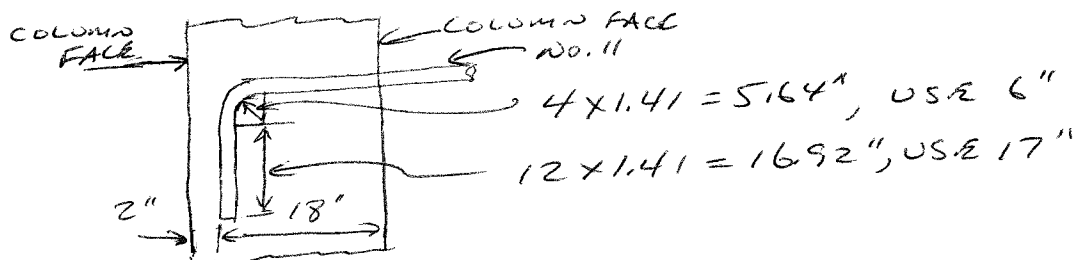 COLUMN
FACE
COLUMN FACE
NO. 11
4 x 1.41 = 5.64", USE 6"
12 x 1.41 = 16.92", USE 17"
2"
18"